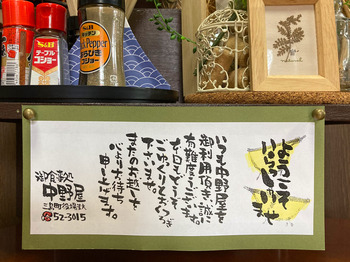 ようこそ
いらっしゃいませ
いつも中野屋を
御利用頂き誠に
有難うございます。
本日もどうぞ
ごゆっくりおくつろぎ
下さいませ。
またのお越しを
心よりお待ち
申し上げます。
御食事処
中野屋
52-3015
テーブル
コショー
Pepper